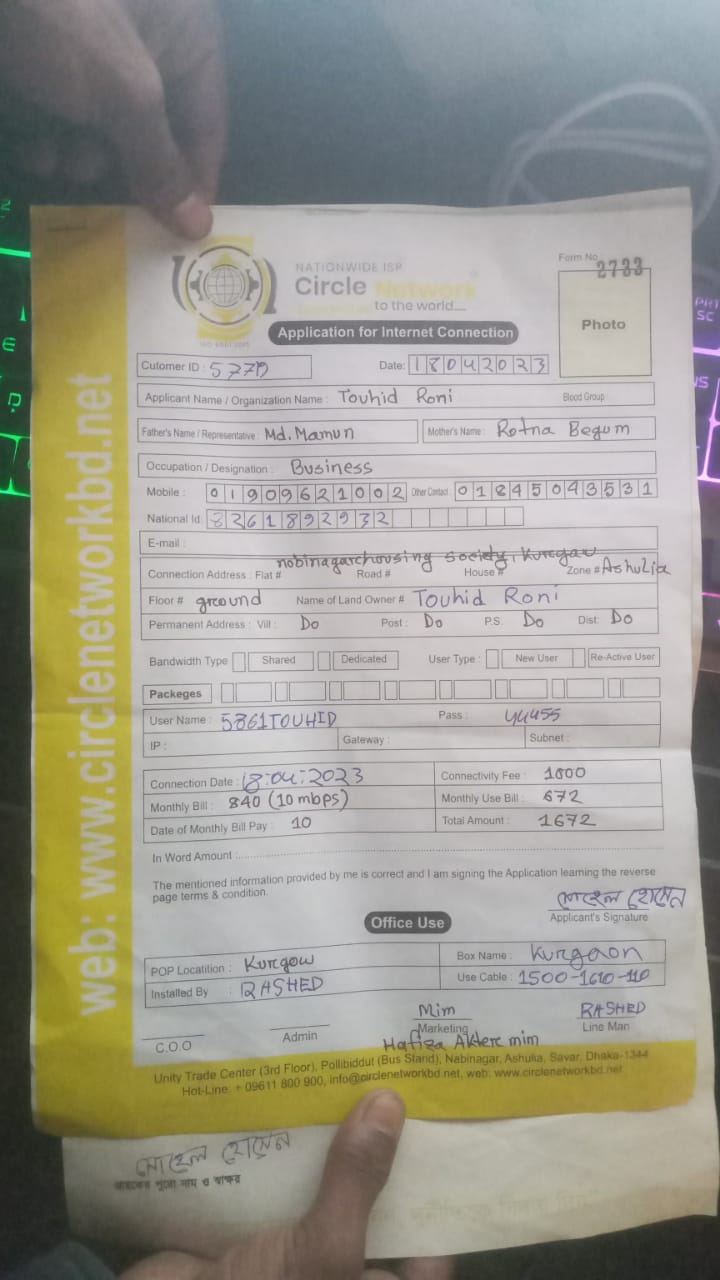 NATIONWIDE ISP
Circle Network
to the world....
Form No 2733
Photo
Application for Internet Connection
Cutomer ID : Date: 18042023
Applicant Name / Organization Name : Touhid Roni Blood Group :
Father's Name / Representative : Md. Mamun Mother's Name : Rotna Begum
Occupation / Designation : Business
Mobile : 01909621002 Other Contact 01845043531
National Id 8261892932
E-mail :
nobinagar housing society, Kurgau
Connection Address : Flat # Road # House # Zone # Ashulia
Floor # ground Name of Land Owner # Touhid Roni
Permanent Address : Vill : Do Post : Do P.S. Do Dist: Do
Bandwidth Type Shared Dedicated User Type : New User Re-Active User
Packeges
User Name : 5861TOUHID Pass : 44455
IP : Gateway : Subnet :
Connection Date : 18:04:2023 Connectivity Fee : 1000
Monthly Bill : 840 (10 mbps) Monthly Use Bill : 672
Date of Monthly Bill Pay : 10 Total Amount : 1672
In Word Amount :
The mentioned information provided by me is correct and I am signing the Application learning the reverse
page terms & condition.
সোহেল হোসেন
Applicant's Signature
Office Use
POP Locatition : Kurgow Box Name : Kurgaon
Installed By : RASHED Use Cable : 1500-1610-110
Mim RASHED
C.O.O Admin Marketing Line Man
Hafiza Aktere mim
Unity Trade Center (3rd Floor), Pollibiddut (Bus Stand), Nabinagar, Ashulia, Savar, Dhaka-1344
Hot-Line: + 09611 800 900, info@circlenetworkbd.net, web: www.circlenetworkbd.net
web: www.circlenetworkbd.net
সোহেল হোসেন
গ্রাহকের পুরো নাম ও স্বাক্ষর